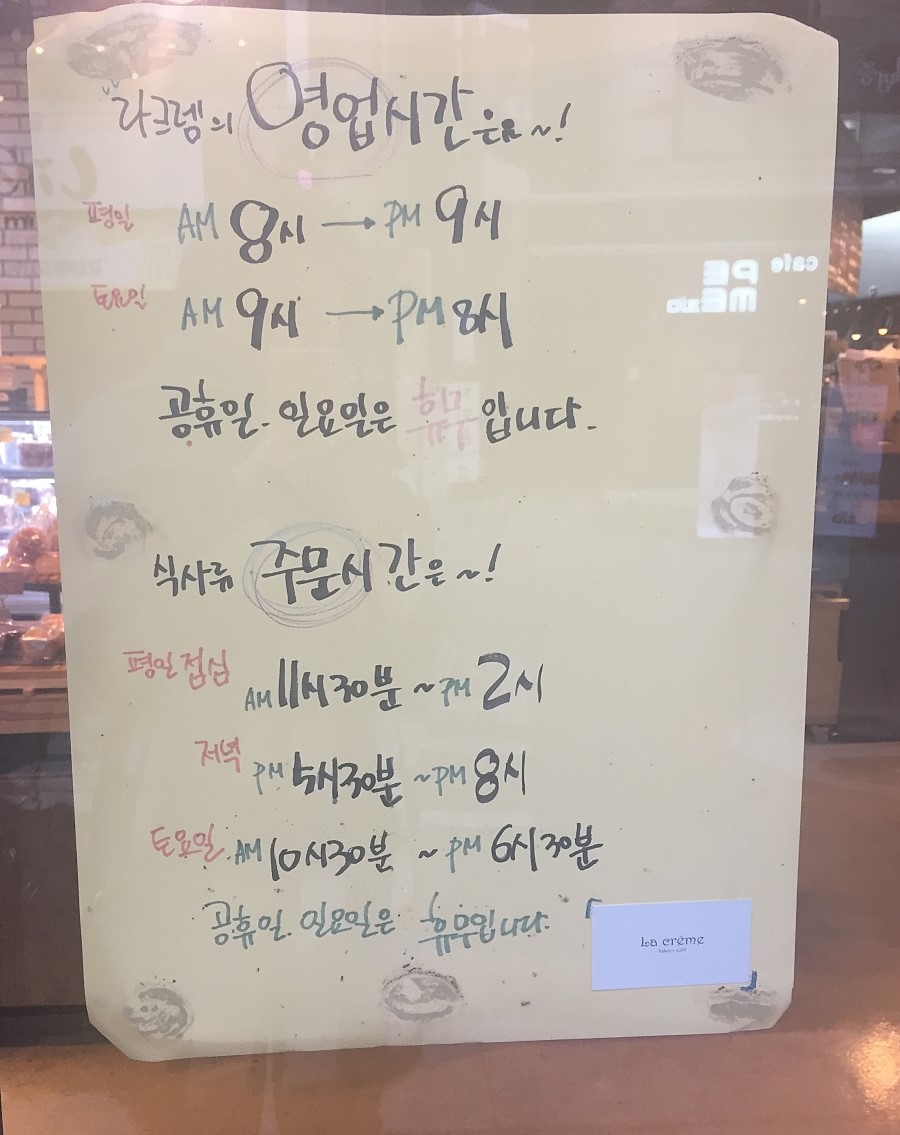 라크렘의 영업시간은요~!
평일 AM 8시 → PM 9시
토요일 AM 9시 → PM 8시
공휴일. 일요일은 휴무입니다.
식사류 주문시간은~!
평일 점심 AM 11시 30분 ~ PM 2시
저녁 PM 5시 30분 ~ PM 8시
토요일. AM 10시 30분 ~ PM 6시 30분
공휴일. 일요일은 휴무입니다.
La crème
cafe